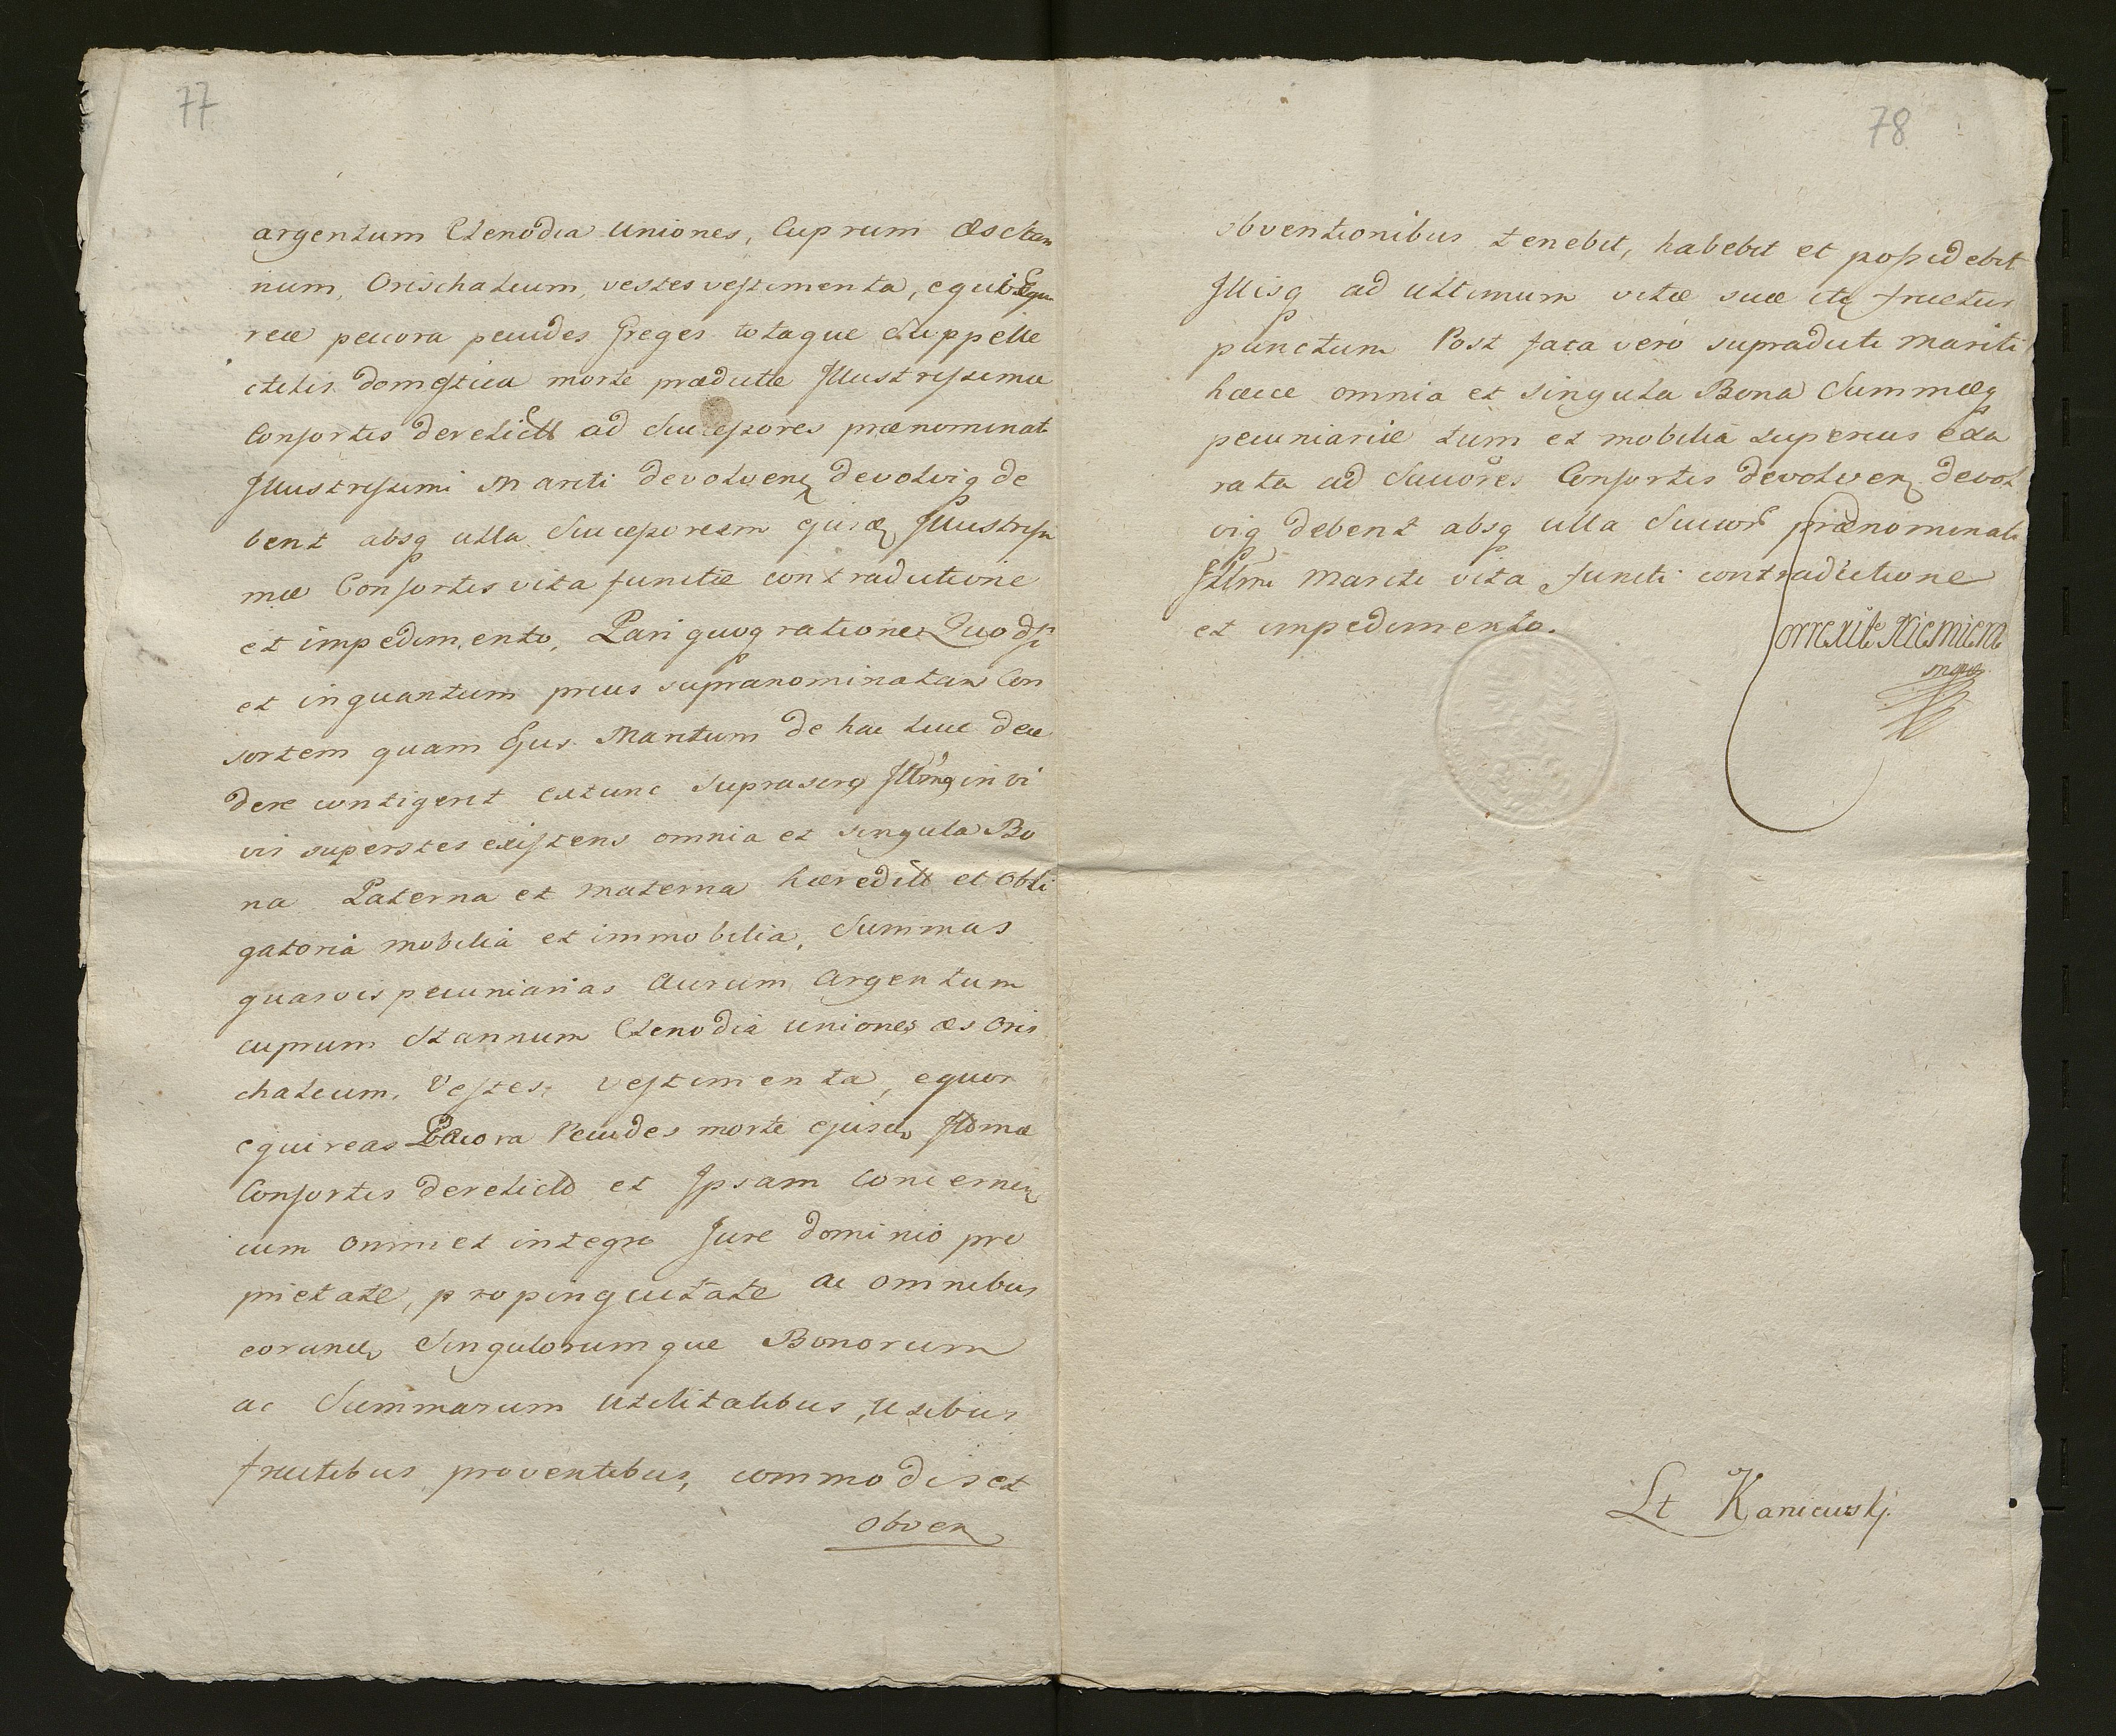 77
argentum Clenodia Uniones, Cuprum æs stan
num, Orischalcum, vestes vestimenta, equi Equi
reæ peccora pecudes Greges totaque Suppelle
ctilis domestica morte prædictæ Illustrissimæ
Consortis derelict ad Successores prænominati
Illustrissimi Mariti devolven devolviq de
bent absq ulla Successorum ejusd Illustrissi
mæ Consortis vita functæ contradictione
et impedimento, Pari quoq ratione Quodsi
et inquantum prius supranominatam Con
sortem quam Ejus Maritum de hac luce dece
dere contigerit extunc suprascrip Illmq in vi
vis superstes existens omnia et singula Bo
na Paterna et Materna hæredit et Obli
gatoria mobilia et immobilia, Summas
quasvis pecuniarias Aurum Argentum
cuprum Stannum Clenodia uniones æs Oris
chalcum, Vestes, vestimenta, equos
equireas Peccora Pecudes morte ejusd Illmæ
Consortis derelict et Ipsam Concernen
cum omni et integro Jure dominio pro
prietate, propinquitate ac omnibus
eorund Singulorumque Bonorum
ac Summarum utilitatibus, usibus
fructibus proventibus, commodis et
obven
78
obventionibus tenebit, habebit et possidebit
Illisq ad ultimum vitæ suæ itq fruetur
punctum Post fata vero supradicti Mariti
hæcce omnia et singula Bona Summæq
pecuniariæ tum et mobilia superius exa
rata ad Succores Consortis devolven devol
viq debent absq ulla Succor prænominati
Illmi Mariti vita functi contradictione
et impedimento.
Correxit Niemiera
mppa
Lt Kaniewskj